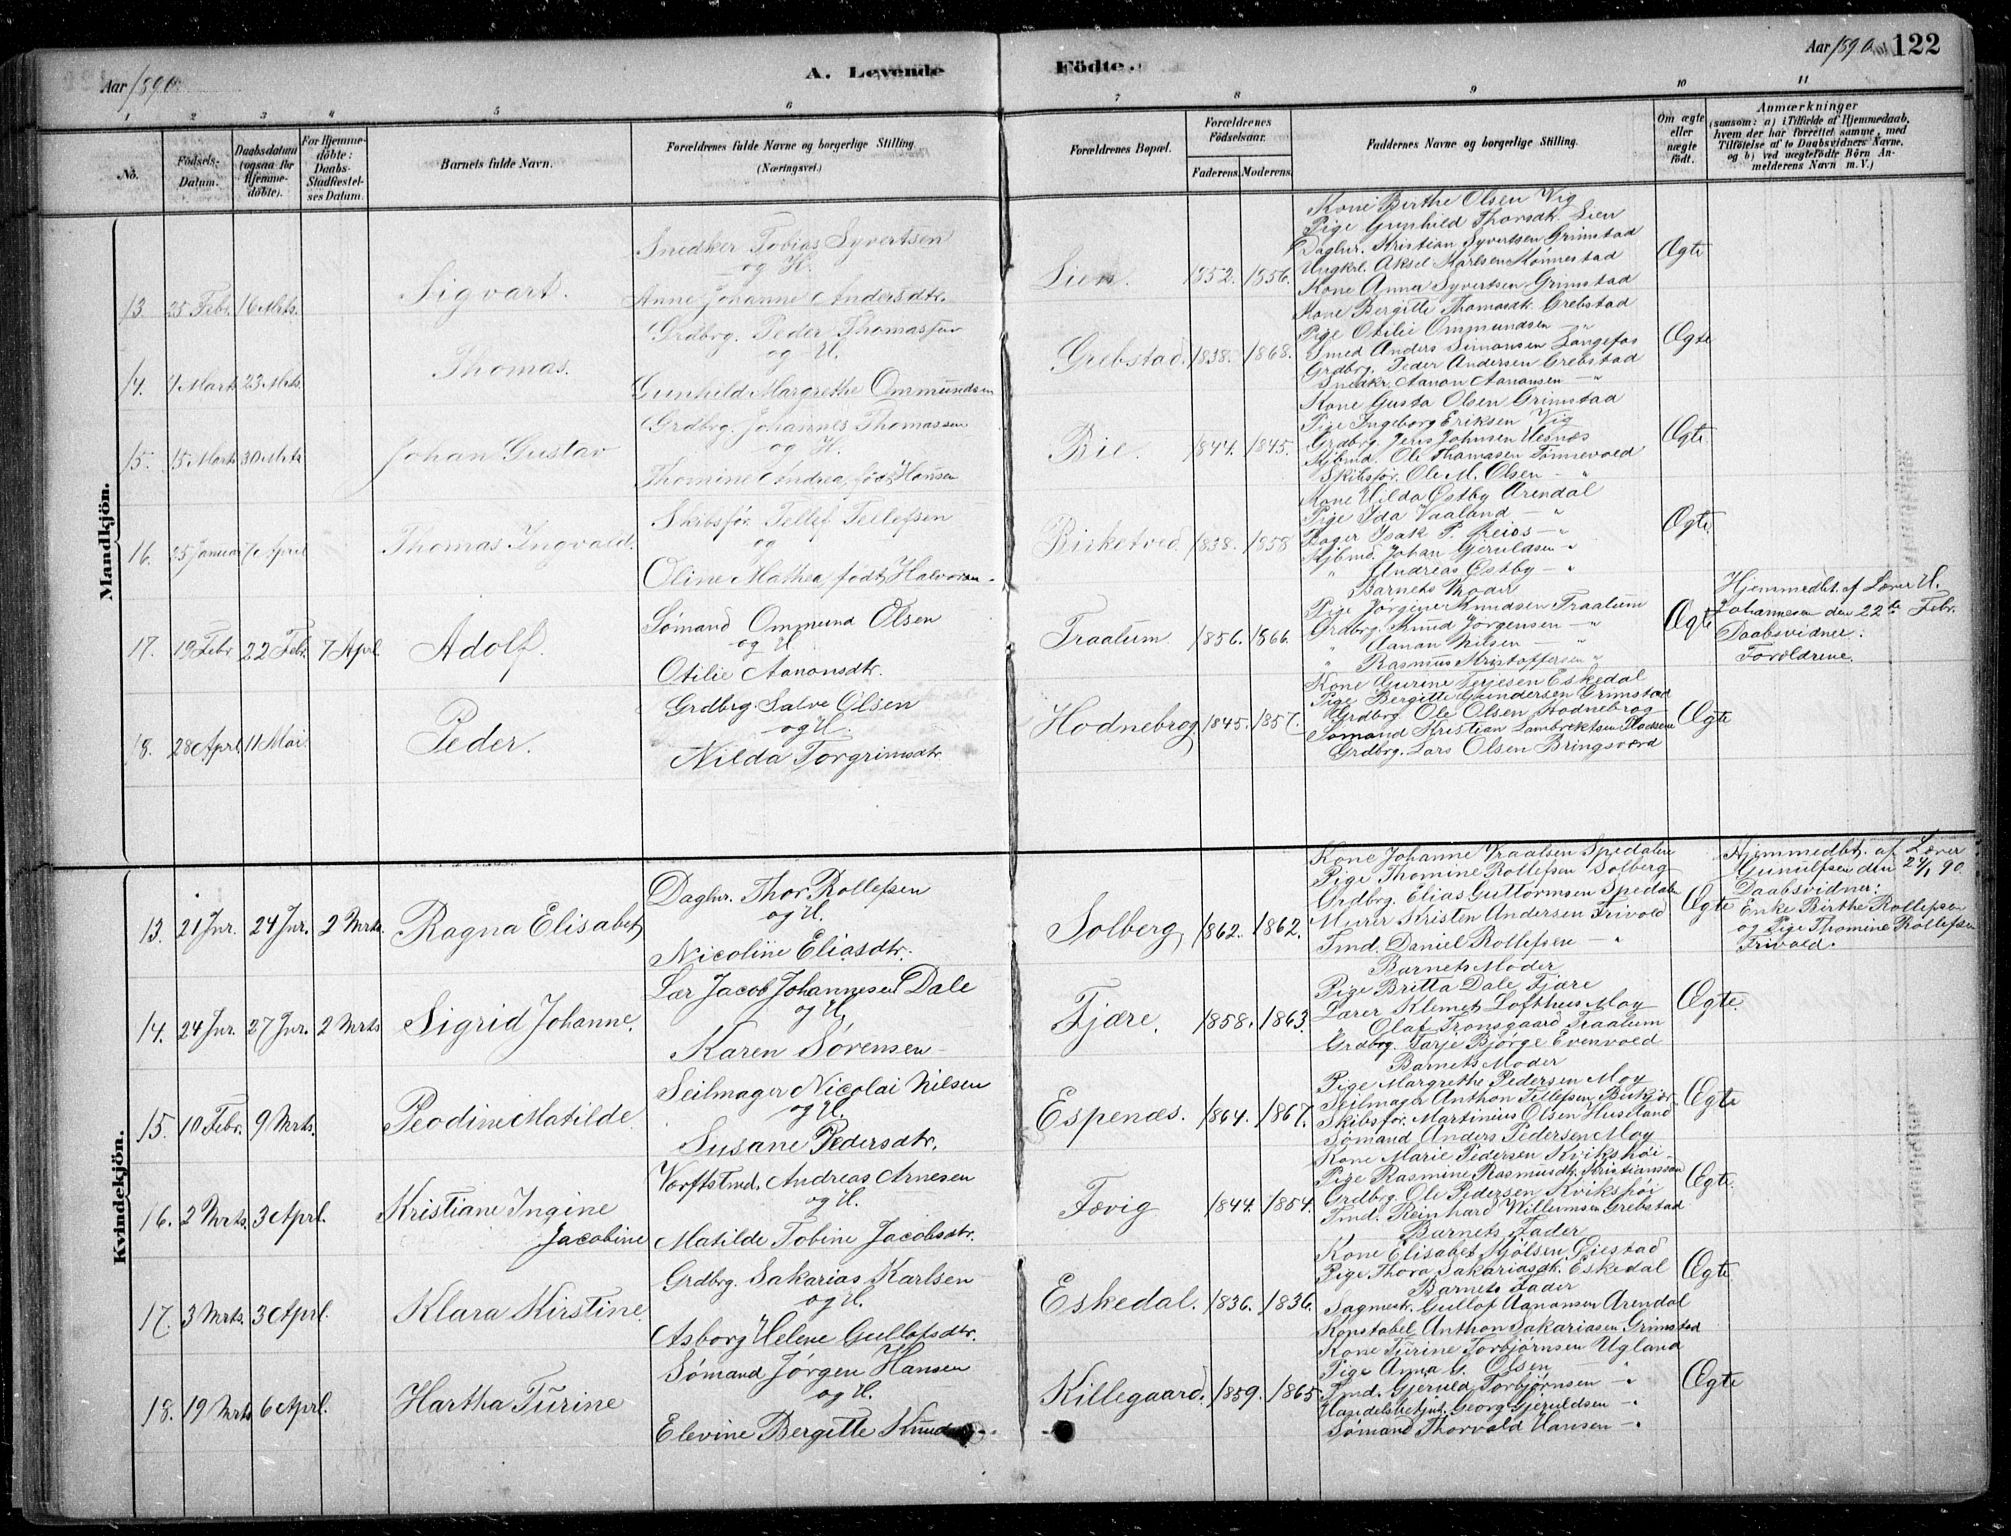 Aar 1890
A. Levende Födte.
Aar 1890 122
1 2 3 4 5 6 7 8 9 10 11
No.
Födsels-Datum.
Daabsdatum (ogsaa for Hjemme-döbte).
For Hjemme-döbte: Daabs-Stadfæstel-ses Datum.
Barnets fulde Navn.
Forældrenes fulde Navne og borgerlige Stilling (Næringsvei.)
Forældrenes Bopæl.
Forældrenes Födselsaar.
Faderens. Moderens.
Faddernes Navne og borgerlige Stilling.
Om ægte eller uægte födt.
Anmærkninger
(saasom: a) i Tilfælde af Hjemmedaab, hvem der har forrettet samme, med Tilföielse af to Daabsvidners Navne. og b) ved uægtefödte Börn An-melderens Navn m. V.)
Mandkjön.
13. 25 Febr. 16 Mrts. Sigvart.
Snedker Tobias Syvertsen
og H.
Anne Johanne Andersdtr.
Lien. 1852. 1856.
Kone Birthe Olsen Vig
Pige Gunhild Thorsdt. Lien
Dagbr. Kristian Syvertsen Grimstad
Ungkrl. Aksel Karlsen Monnestad
Kone Anna Syvertsen Grimstad
Ægte
14. 4 Marts 23 Mrts. Thomas.
Grdbrg. Peder Thomassen
og H.
Gunhild Margrethe Ommundsen
Grebstad. 1838. 1868.
Kone Bergitte Thomasdt. Grebstad
Pige Otilie Ommundsen "
Smed Anders Simonsen Langefos
Grdbrg. Peder Andersen Grebstad
Snedkr. Aanon Aanonsen — "
Ægte
15. 15 Marts 30 Mrts Johan Gustav
Grdbrg. Johannes Thomassen
og H.
Thomine Andrea, født Hansen
Bie. 1844. 1845.
Kone Gusta Olsen Grimstad
Pige Ingeborg Eriksen Vig
Grdbrg. Jens Johnsen Vesnes
Kjbmd. Ole Thomasen Tønnevold
Skibsfør. Ole M. Olsen — "
Ægte
16. 25 Januar 7 April Thomas Ingvald.
Skibsfør. Tellef Tellefsen
og
Oline Mathea, født Halvorsen
Birketved 1838. 1858
Kone Hilda Østby Arendal
Pige Ida Vaaland — "
Bager Isak P. — "
Kjbmd. Johan Gjeruldsen — "
" Andreas Østby — "
Ægte
17. 19 Febr 22 Febr. 7 Apl. Adolf.
Sømand Ommund Olsen
og H.
Otilie Aanonsdtr.
Traalum 1856. 1866.
Barnets Moder
Pige Jørgine Knudsen Traalum
Grdbrg. Knud Jorgensen — "
" Aanon Nilsen "
" Rasmus Kristoffersen "
Ægte
Hjemmedbt. af Lærer H.
Johannesen den 22de Febr.
Daabsvidner:
Forældrene.
18. 28 April 11 Mai. Peder.
Grdbrg Salve Olsen
og H.
Nilda Torgrimsdtr
Hodnebrog 1845. 1857.
Kone Gurine Terjesen Eskedal
Pige Bergitte Gundersen Grimstad
Grdbrg Ole Olsen Hodnebrog
Sømand Kristian Lambrektsen
Grdbrg. Lars Olsen Bringsværd
Ægte
Kvindekjön.
13. 21 Jnr. 24 Jnr. 2 Mrts. Ragna Elisabet
Dagbr. Thor Rollefsen
og H.
Nicoline Eliasdtr.
Solberg 1862. 1862.
Kone Johanne Vraalsen Spedalen
Pige Thomine Rollefsen Solberg
Grdbrg. Elias Guttormsen Spedalen
Murer Kristen Andersen Frivold
Tmd. Daniel Rollefsen — "
Ægte
Hjemmedbt. af Lærer
Gunulfsen den 24/1 90.
Daabsvidner:
Enke Birthe Rollefsen
og Pige Thomine Rollefsen
Frivold.
14. 24 Jnr. 27 Jnr. 2 Mrts Sigrid Johanne.
Lær Jacob Johannesen Dale
og H.
Karen Sørensen
Fjære. 1858. 1863.
Barnets Moder
Pige Britta Dale Fjære
Lærer Klemet Lofthus Moy
" Olaf Tronsgaard Traalum
Grdbrg. Tarje Bjørge Evenvold
Ægte.
15. 10 Febr. 9 Mrts. Peodine Matilde.
Seilmager Nicolai Nilsen
og H.
Susane Pedersdtr.
Espenæs. 1864. 1867.
Barnets Moder
Pige Margrethe Pedersen Moy
Seilmager Anthon Tellefsen
Skibsfør. Martinius Olsen Huseland
Sømand Anders Pedersen Moy
Ægte
16. 2 Mrts. 3 Aprl. Kristiane Ingine
Jacobine
Værftstmd. Andreas Arnesen
og H.
Matilde Tobine Jacobsdtr.
Fævig 1844. 1854.
Kone Marie Pedersen Kvikshøi
Pige Rasmine Rasmusdt. Kristianssand
Grdbrg. Ole Pedersen Kvikshøi
Tmd. Reinhard Willumsen Grebstad
Barnets Fader
Ægte.
17. 3 Mrts. 3 Aprl. Klara Kirstine.
Grdbrg. Sakarias Karlsen
og H.
Asborg Helene Gullofsdtr.
Eskedal. 1836. 1836.
Kone Elisabet Kjølsen Giestad
Pige Thora Sakariasdt. Eskedal
Barnets Fader
Sagmest. Gullof Aanonsen Arendal
Konstabel Anthon Sakariasen Grimstad
Ægte.
18. 19 Mrts 6 Aprl. Hartha Turine
Sømand Jørgen Hansen
og H.
Elevine Bergitte
Killegaard. 1859. 1865
Kone Turine Torbjørnsen Ugland
Pige Anna G. Olsen — "
Tmd. Gjeruld Torbjørnsen — "
Handelsbetjnt. Georg Gjeruldsen — "
Sømand Thorvald Hansen — "
Ægte